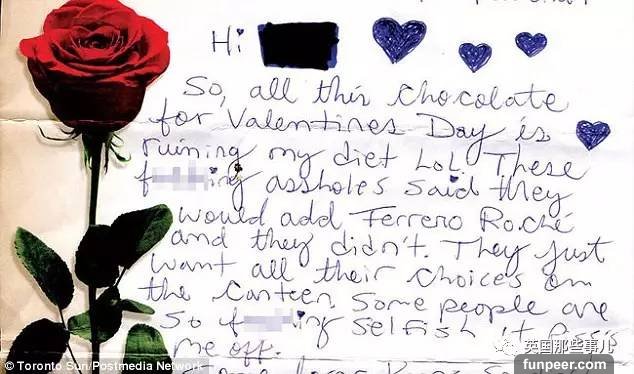 Hi
So, all this chocolate
for Valentines Day is
ruining my diet LoL. These
f ing assholes said they
would add Ferrero Roché
and they didn't. They just
want all their choices on
the canteen. Some people are
so f ing selfish it piss
me off.
© Toronto Sun/Postmedia Network
英国那些事儿
funpeer.com